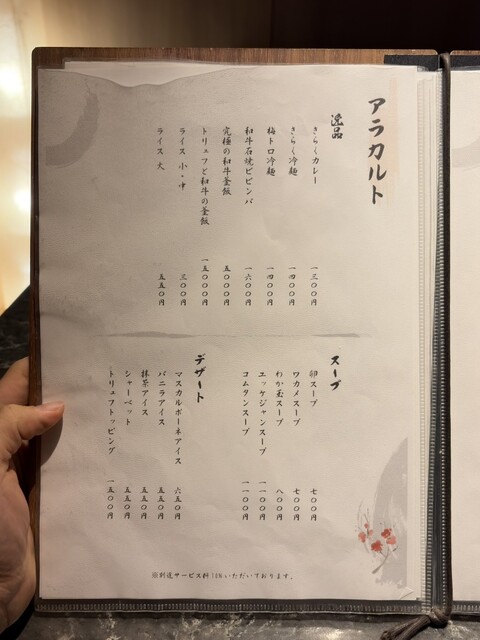 アラカルト
逸品
きらくカレー 一三〇〇円
きらく冷麺 一四〇〇円
梅トロ冷麺 一四〇〇円
和牛石焼ビビンバ 一六〇〇円
究極の和牛釜飯 五〇〇〇円
トリュフと和牛の釜飯 一五〇〇〇円
ライス 小・中 三〇〇円
ライス 大 五五〇円
スープ
卵スープ 七〇〇円
ワカメスープ 七〇〇円
わか玉スープ 八〇〇円
エッケジャンスープ 一一〇〇円
コムタンスープ 一一〇〇円
デザート
マスカルポーネアイス 六五〇円
バニラアイス 五五〇円
抹茶アイス 五五〇円
シャーベット 五五〇円
トリュフトッピング 一五〇〇円
※別途サービス料10%いただいております。